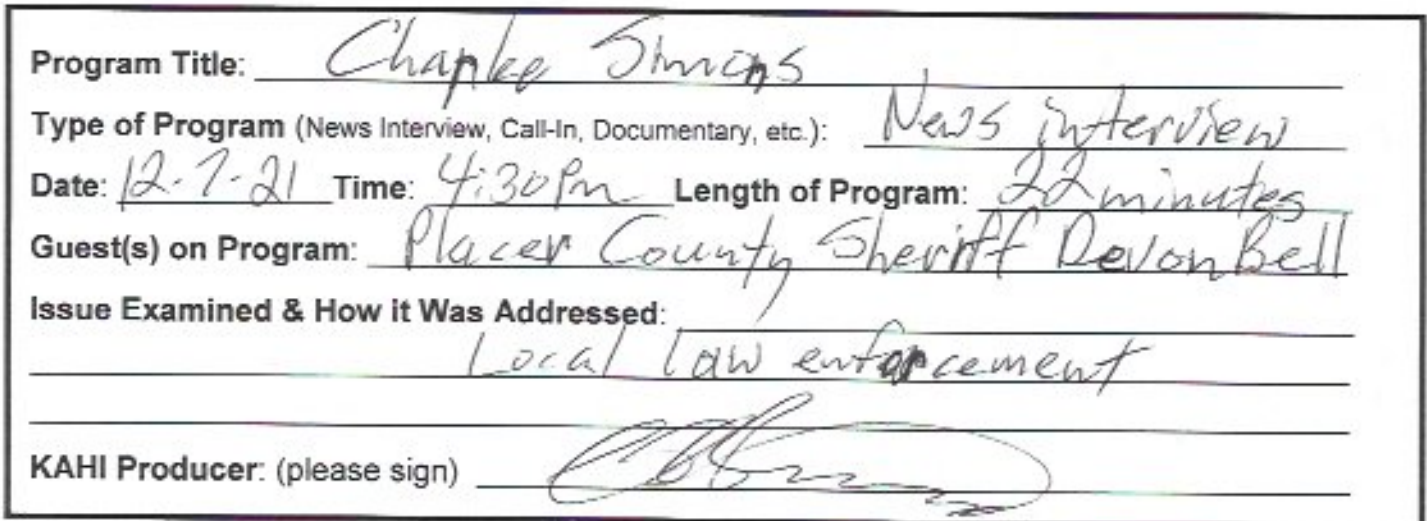 Program Title: Simons
Type of Program (News Interview, Call-In, Documentary, etc.): News interview
Date: 12-7-21 Time: 4:30pm Length of Program: 22 minutes
Guest(s) on Program: Placer County Sheriff Devon Bell
Issue Examined & How it Was Addressed:
Local law enforcement
KAHI Producer: (please sign)